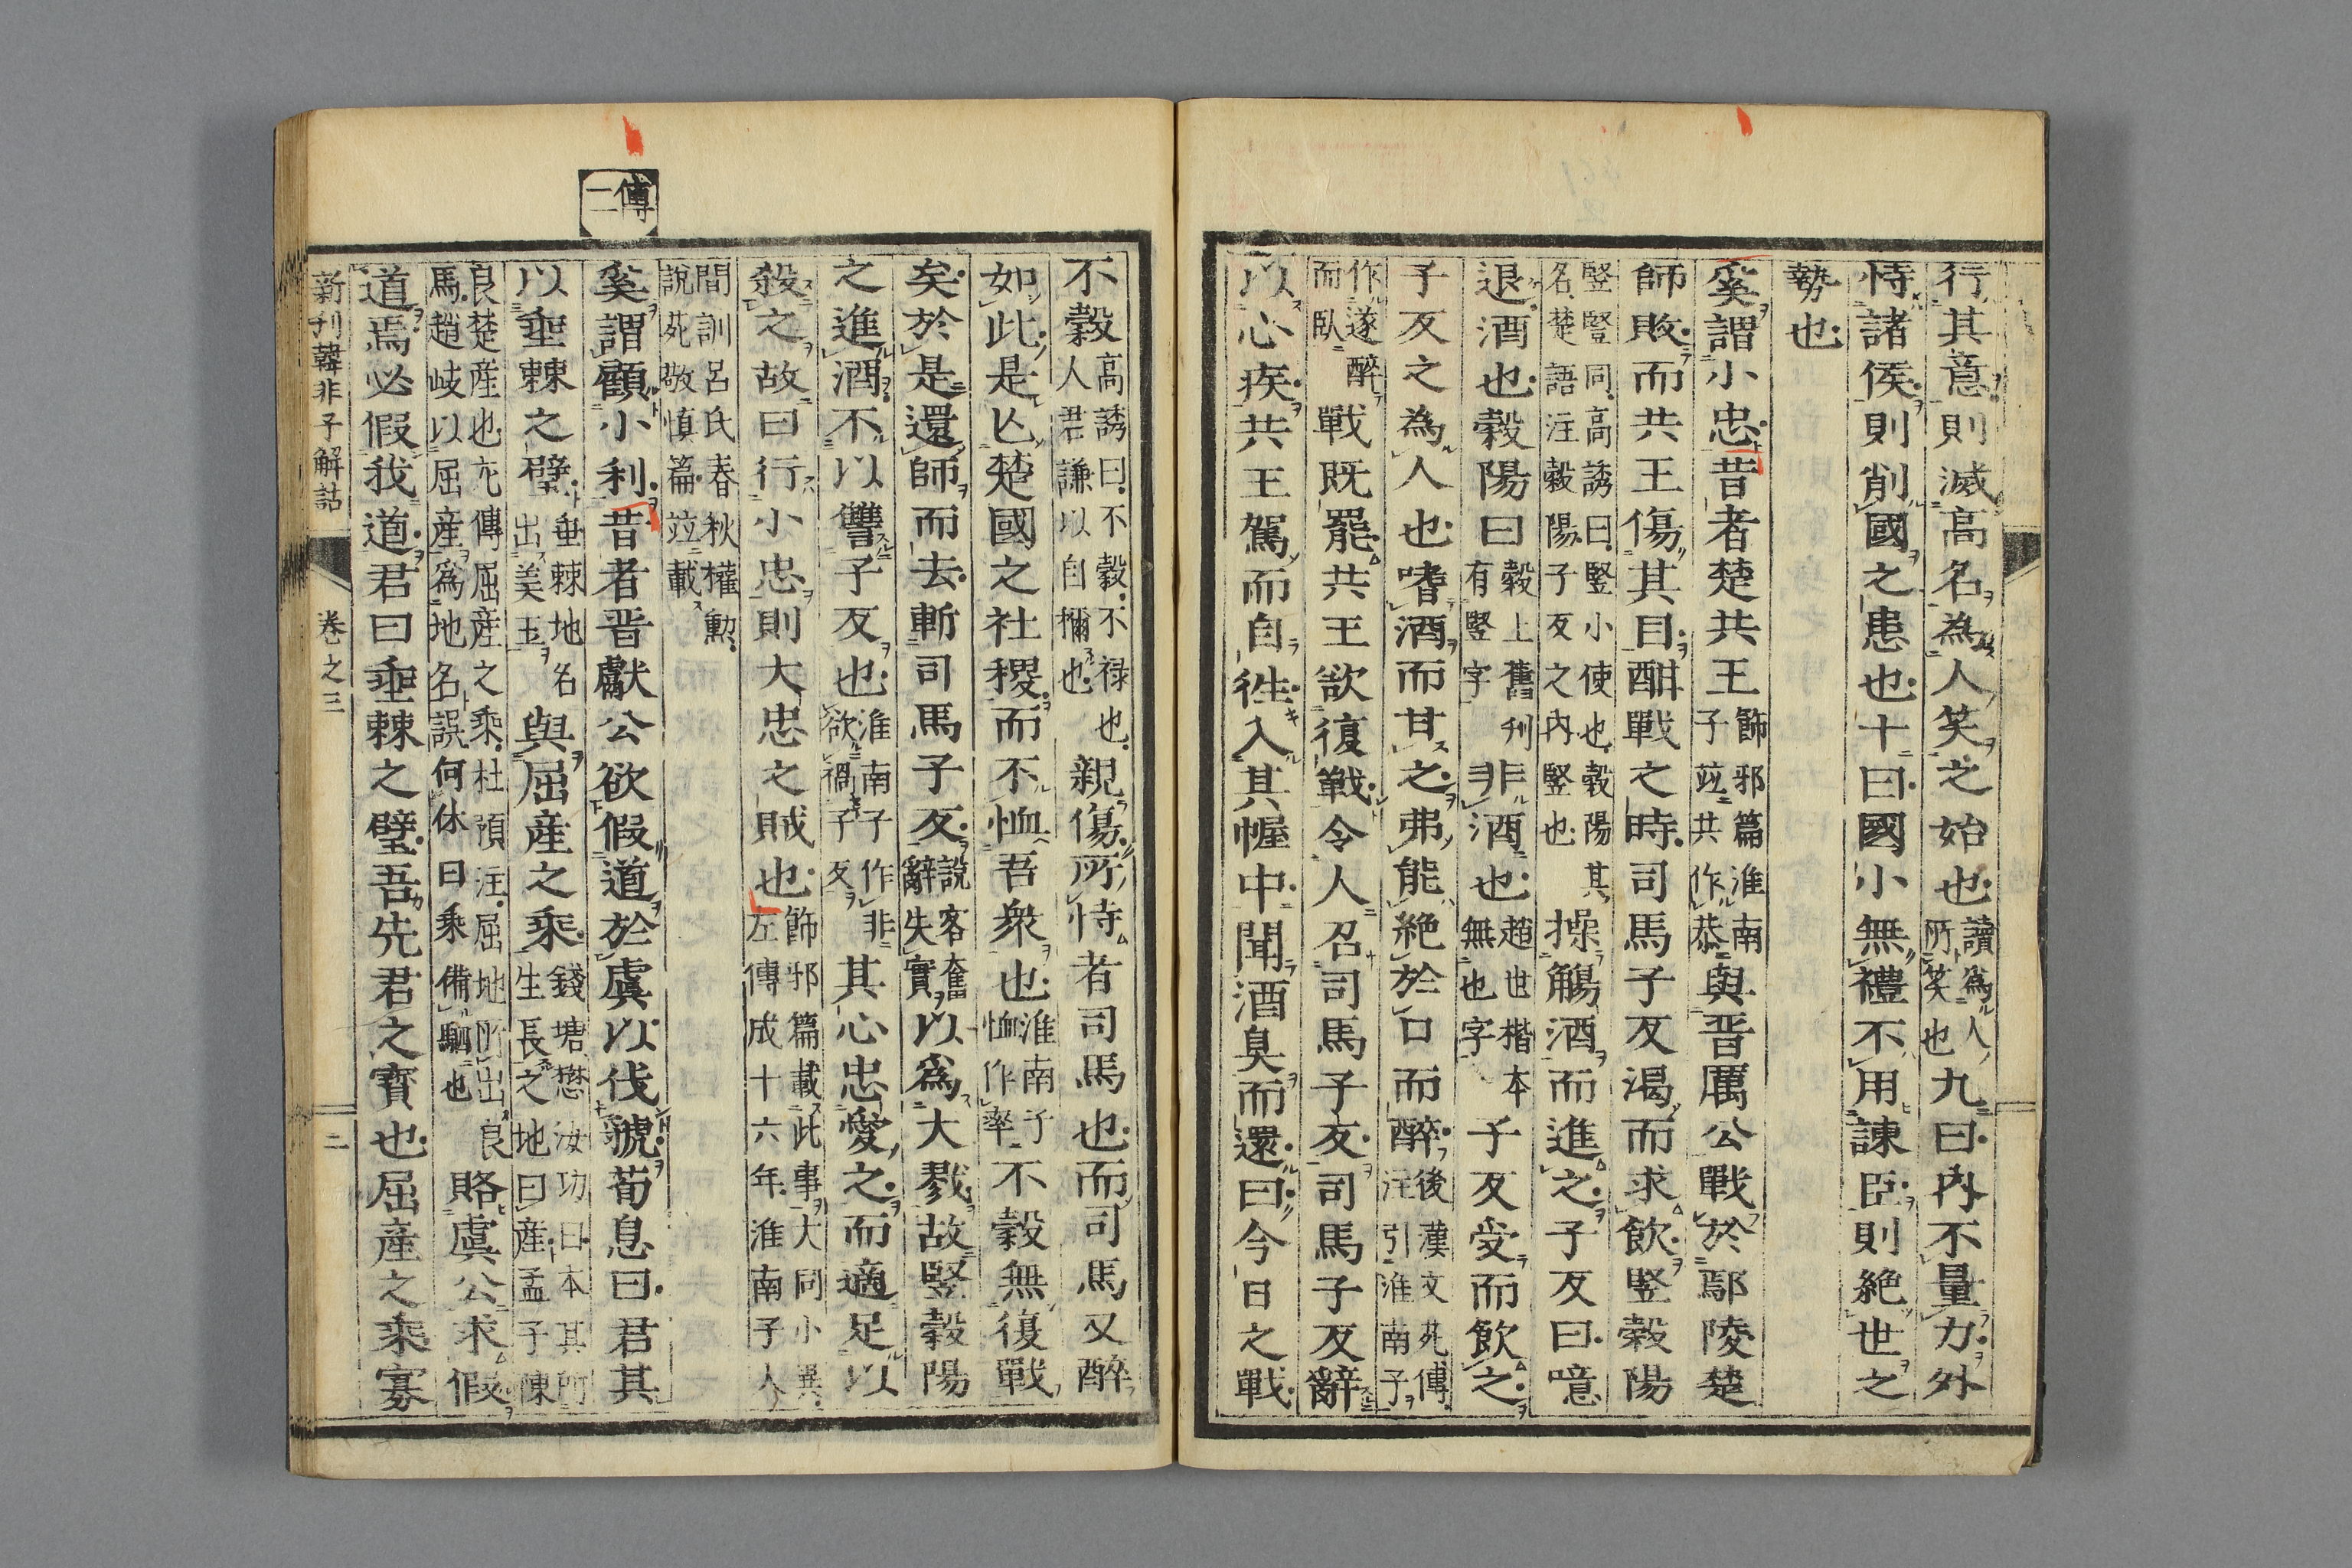 行其意則滅高名為人笑之始也讀爲人所笑也九曰內不量力外
恃諸侯則削國之患也十曰國小無禮不用諫臣則絶世之
勢也
奚謂小忠昔者楚共王飾邪篇淮南子竝共作恭與晋厲公戰於鄢陵楚
師敗而共王傷其目酣戰之時司馬子反渴而求飲豎穀陽
竪豎同高誘曰豎小使也穀陽其名楚語注穀陽子反之內豎也操觴酒而進之子反曰噫
退酒也穀陽曰穀上舊刊有豎字非酒也趙世楷本無也字子反受而飲之
子反之為人也嗜酒而甘之弗能絶於口而醉後漢文苑傳注引淮南子
作遂醉而臥戰既罷共王欲復戰令人召司馬子反司馬子反辭
以心疾共王駕而自往入其幄中聞酒臭而還曰今日之戰
傳二
不穀高誘曰不穀不禄也人君謙以自穪也親傷所恃者司馬也而司馬又醉
如此是亾楚國之社稷而不恤吾衆也淮南子恤作率不穀無復戰
矣於是還師而去斬司馬子反說客奮辭失實以爲大戮故豎穀陽
之進酒不以讐子反也淮南子作非欲禍子反其心忠愛之而適足以
殺之故曰行小忠則大忠之賊也飾邪篇載此事大同小異左傳成十六年淮南子人
間訓呂氏春秋權勲說苑敬慎篇竝載
奚謂顧小利昔者晋獻公欲假道於虞以伐虢荀息曰君其
以垂棘之璧垂棘地名出美玉與屈産之乘錢塘懋汝功曰本其所生長之地曰産孟子陳
良楚産也左傳屈産之乘杜預注屈地所出良馬趙岐以屈産爲地名誤何休曰乘備駟也賂虞公求假
道焉必假我道君曰垂棘之璧吾先君之寶也屈産之乘寡
新刊韓非子解詁
卷之三
二